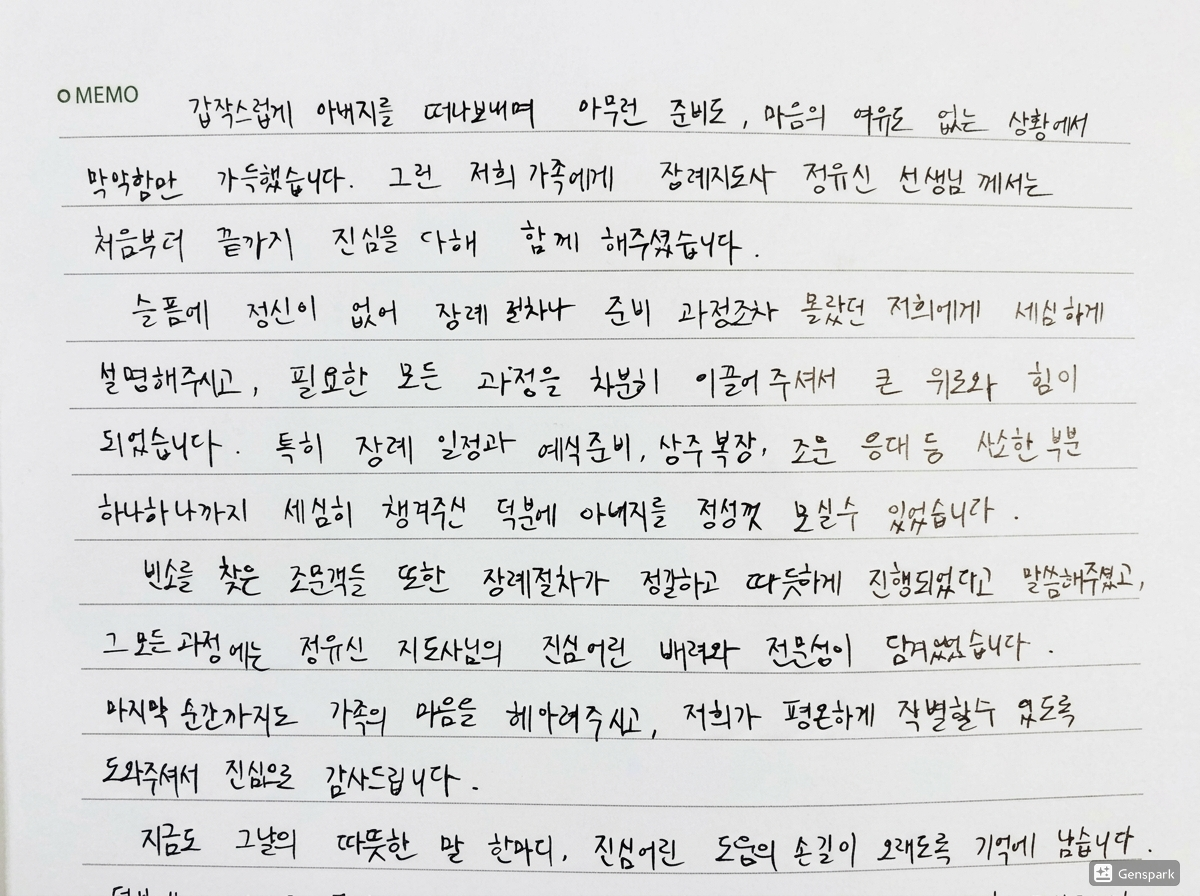 MEMO
갑작스럽게 아버지를 떠나보내며 아무런 준비도, 마음의 여유도 없는 상황에서
막막함만 가득했습니다. 그런 저희 가족에게 장례지도사 정유신 선생님 께서는
처음부터 끝까지 진심을 다해 함께 해주셨습니다.
슬픔에 정신이 없어 장례 절차나 준비 과정조차 몰랐던 저희에게 세심하게
설명해주시고, 필요한 모든 과정을 차분히 이끌어 주셔서 큰 위로와 힘이
되었습니다. 특히 장례 일정과 예식준비, 상주복장, 조문 응대 등 사소한 부분
하나하나까지 세심히 챙겨주신 덕분에 아버지를 정성껏 모실수 있었습니다.
빈소를 찾은 조문객들 또한 장례절차가 정갈하고 따듯하게 진행되었다고 말씀해주셨고,
그 모든 과정에는 정유신 지도사님의 진심어린 배려와 전문성이 담겨있었습니다.
마지막 순간까지도 가족의 마음을 헤아려주시고, 저희가 평온하게 작별할수 있도록
도와주셔서 진심으로 감사드립니다.
지금도 그날의 따뜻한 말 한마디, 진심어린 도움의 손길이 오래도록 기억에 남습니다.
Genspark